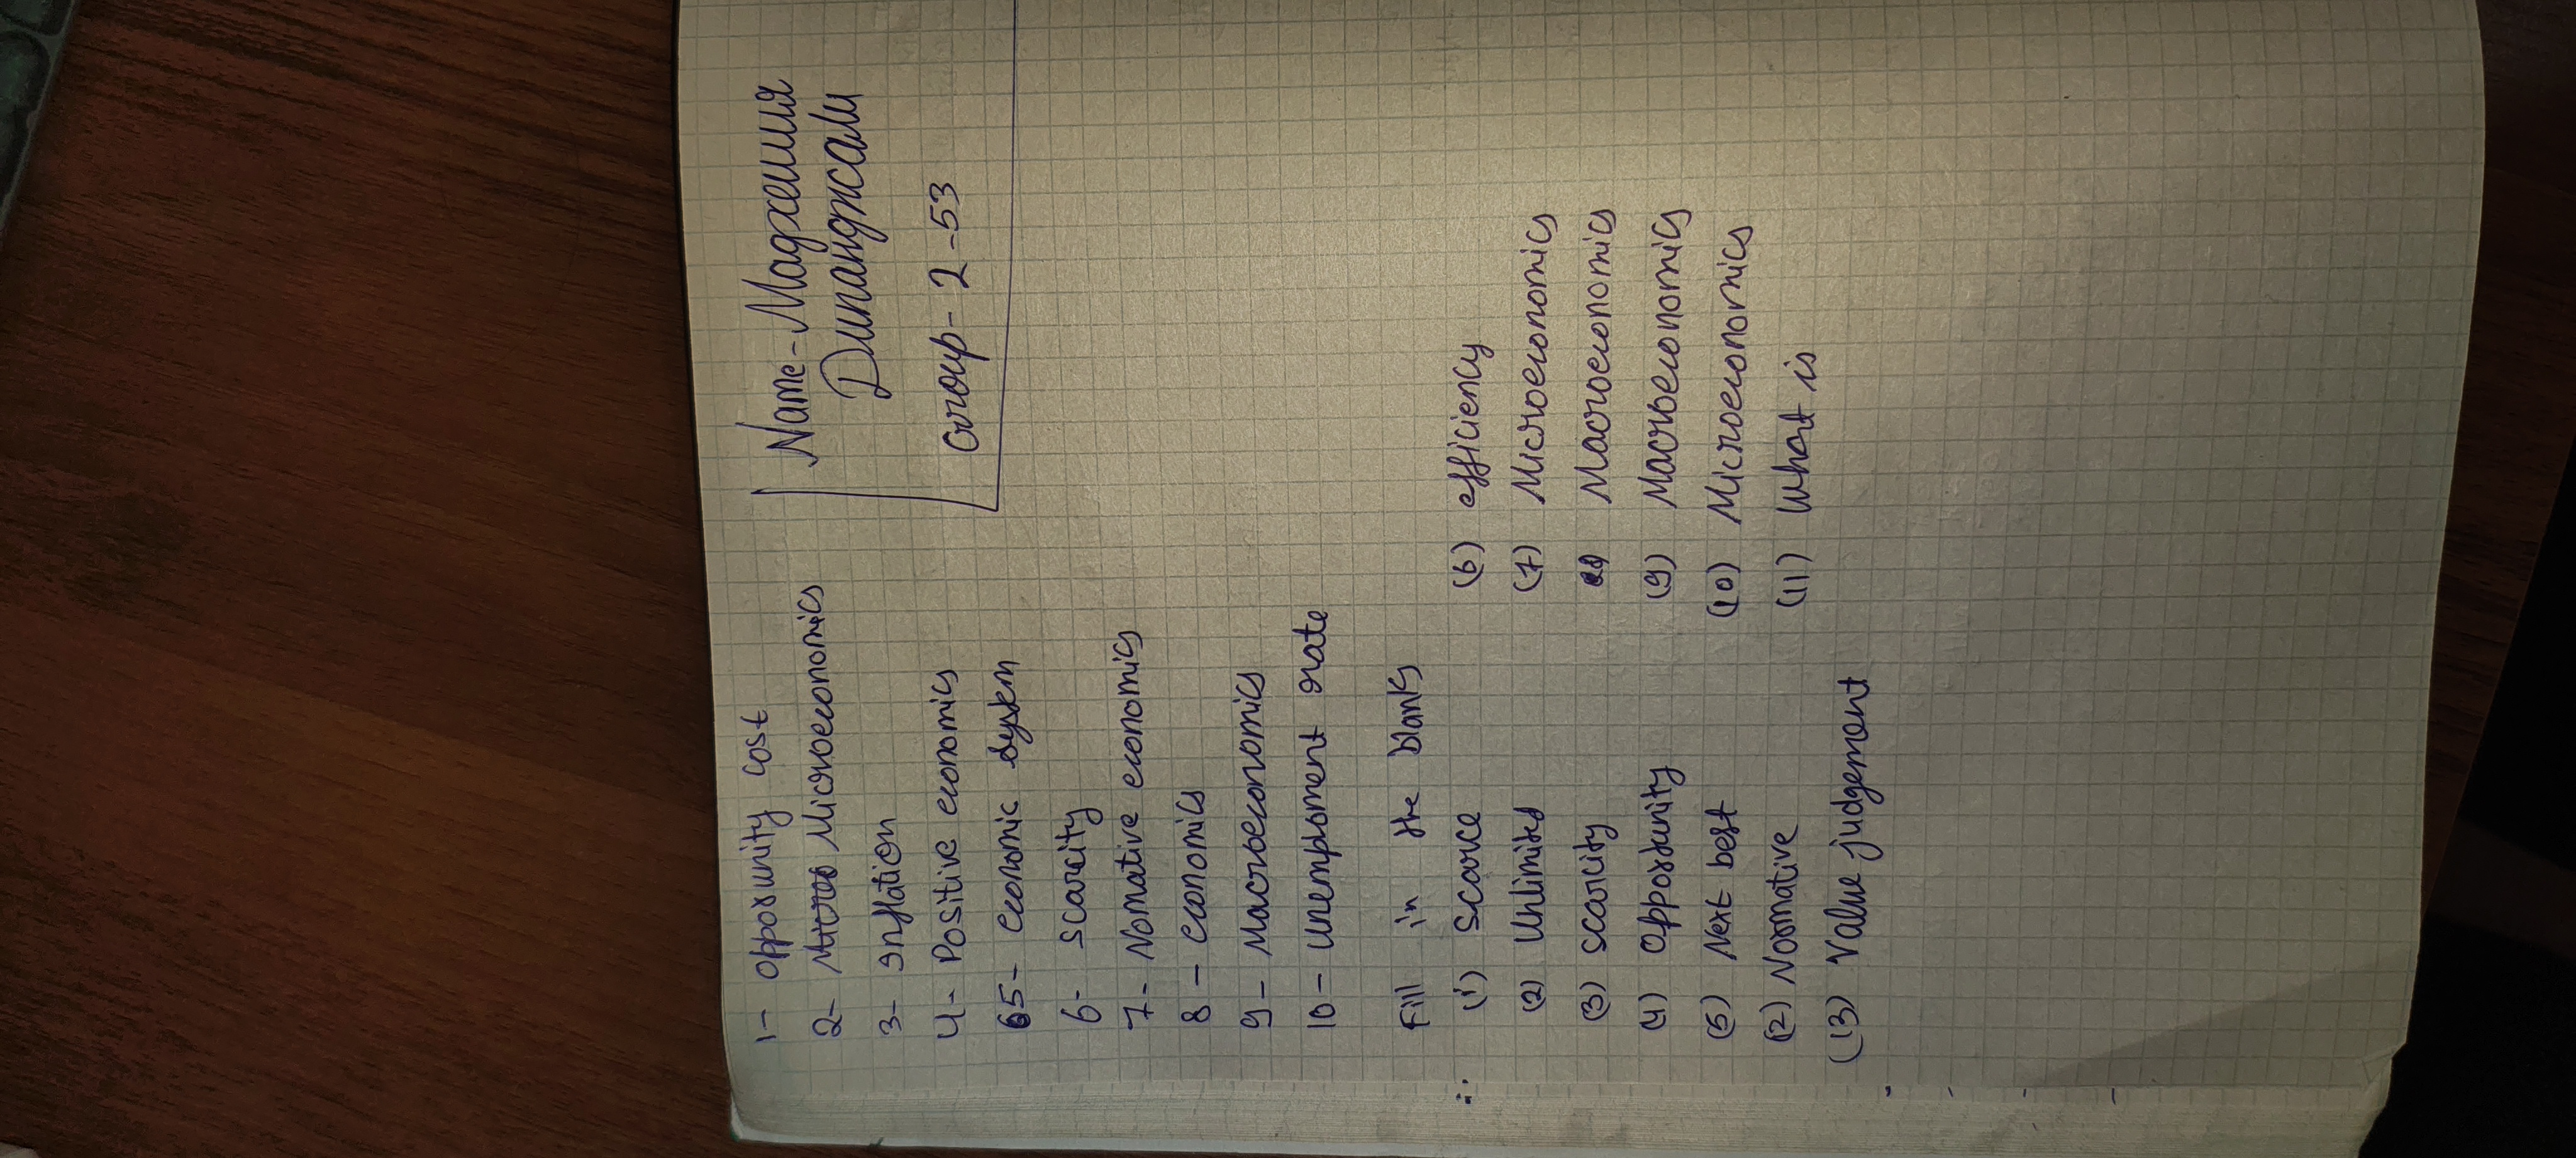 Name- Маджешия
Дипанджали
Group- 2-53
1- opportunity cost
2- Microeconomics
3- Inflation
4- Positive economics
5- economic system
6- scarcity
7- Nomative economics
8- economics
9- Macroeconomics
10- unemploment rate
Fill in the blanks
(1) Scarce
(2) Unlimited
(3) scarcity
(4) Opportunity
(5) Next best
(6) efficiency
(7) Microeconomics
Macroeconomics
(9) Macroeconomics
(10) Microeconomics
(11) What is
(2) Normative
(13) Value judgement